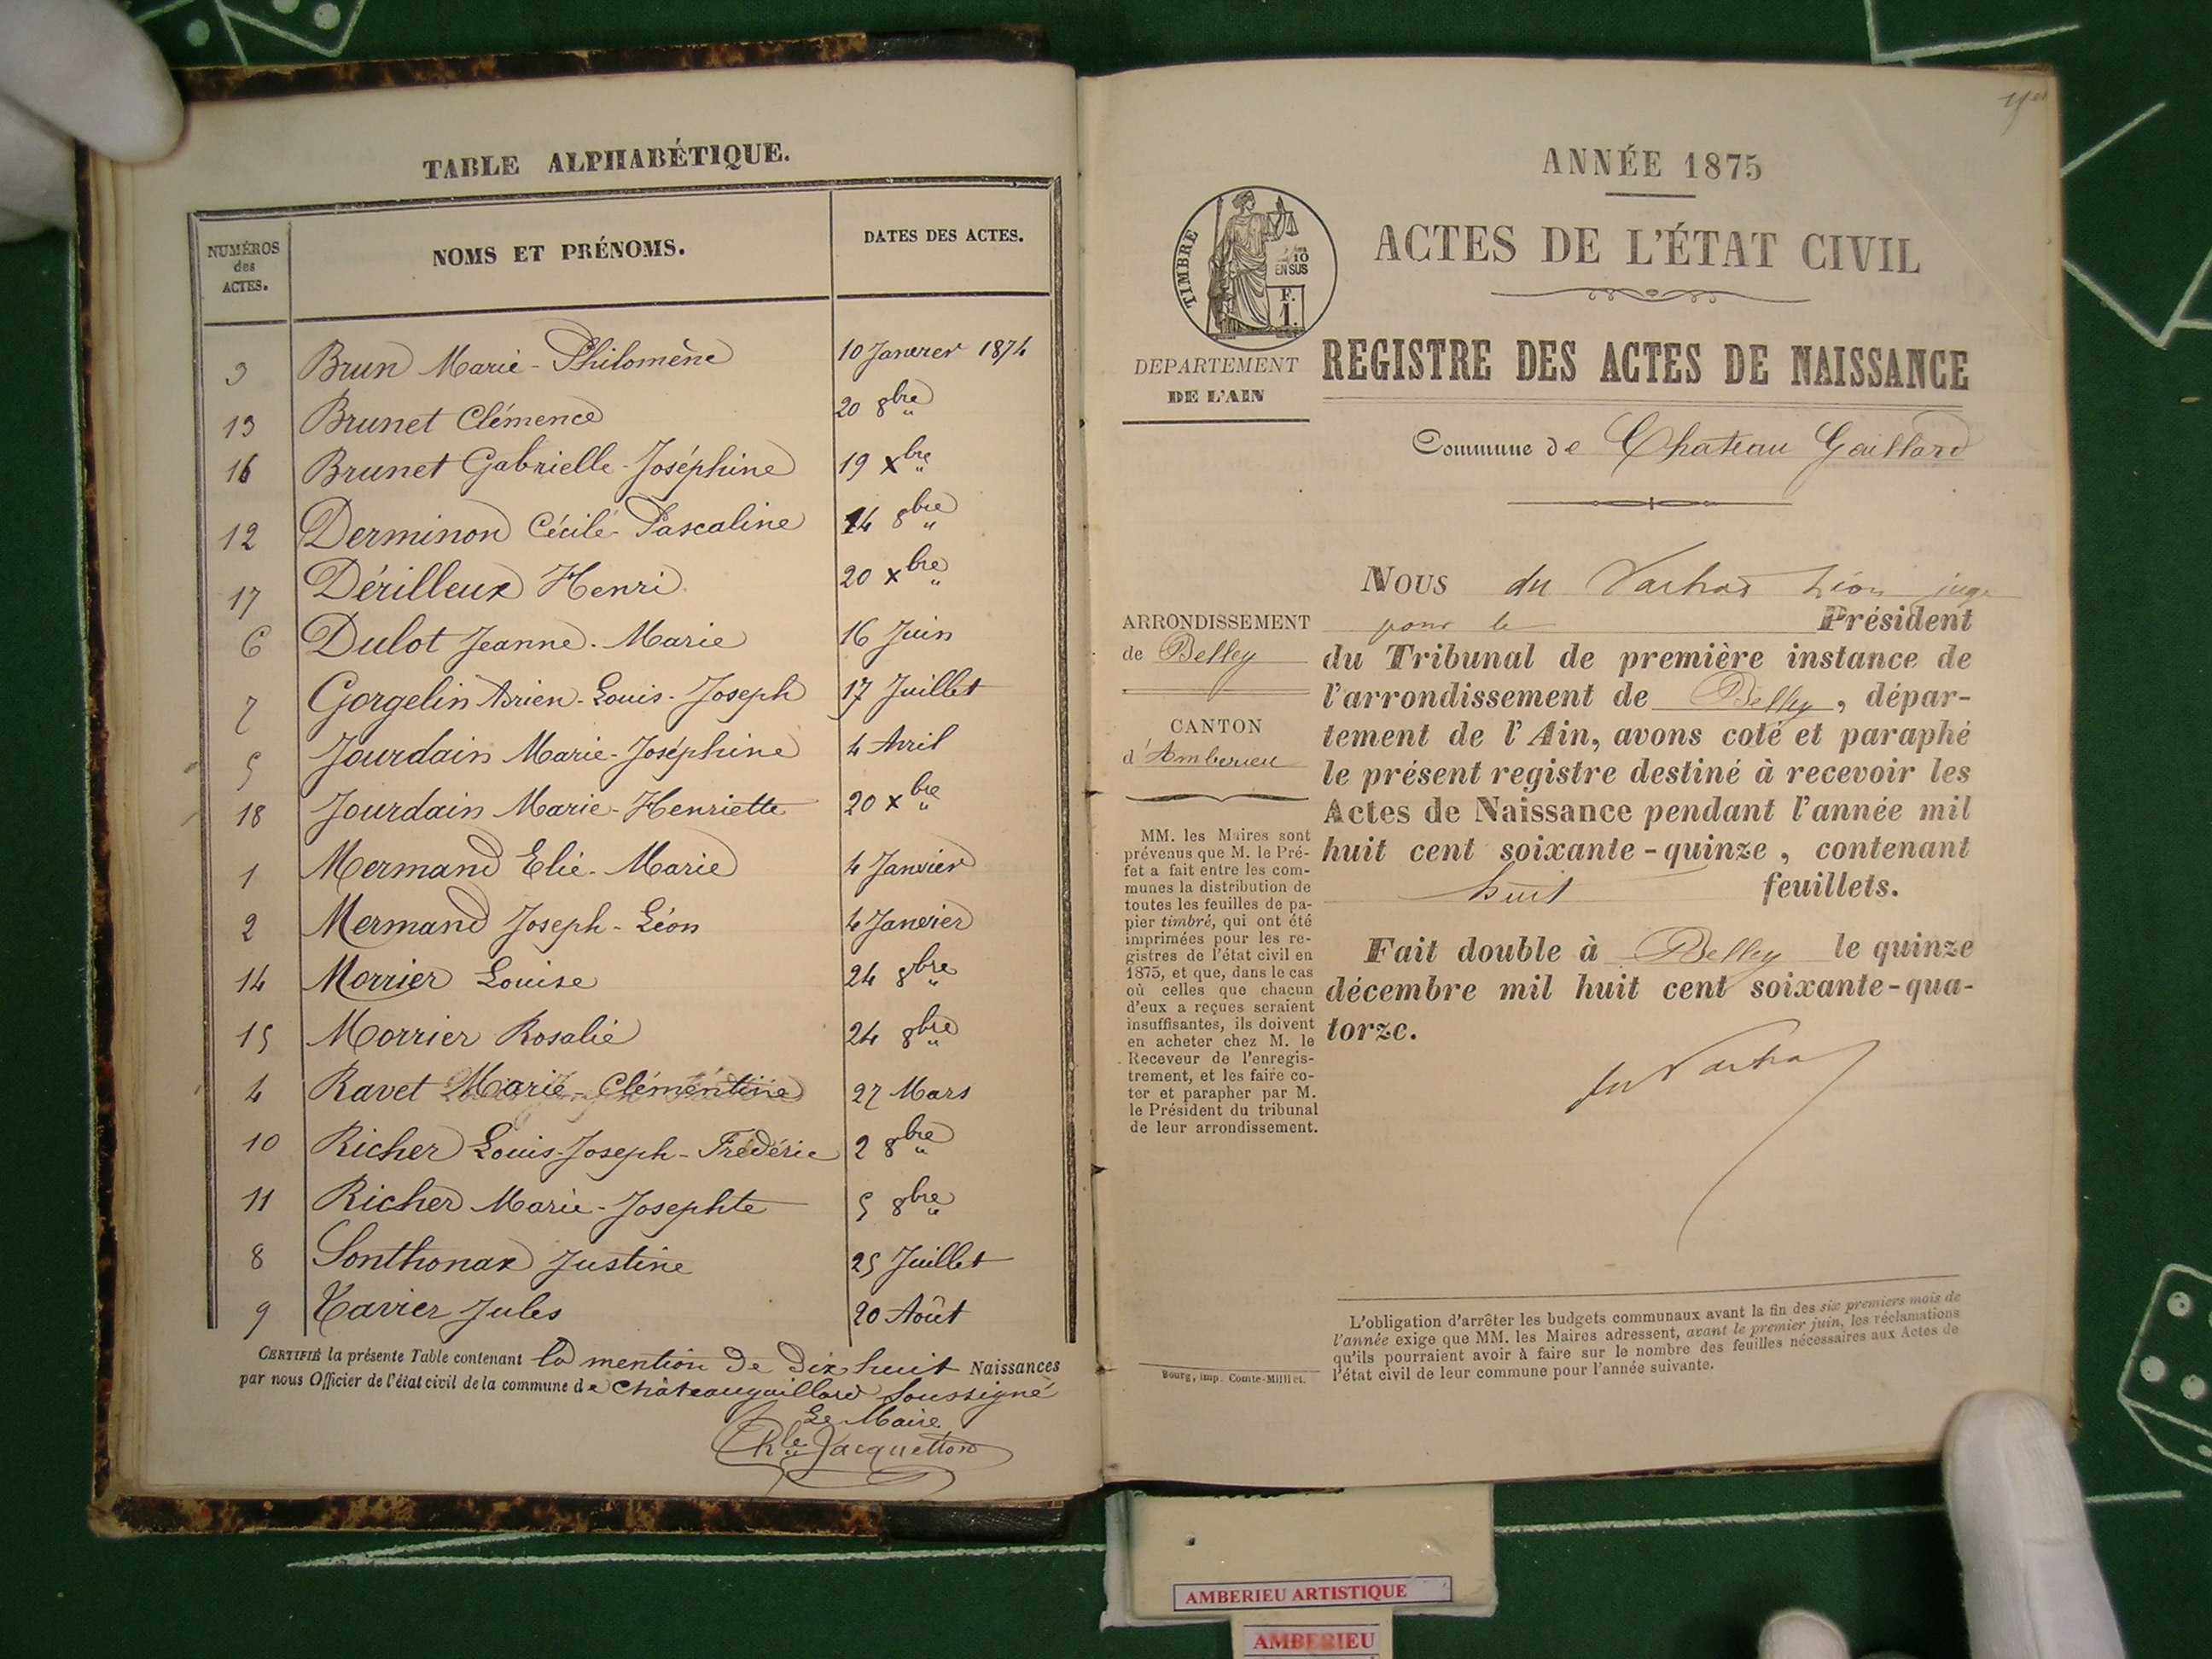 TABLE ALPHABÉTIQUE.
NUMÉROS des ACTES. NOMS ET PRÉNOMS. DATES DES ACTES.
3 Brun Marie-Philomène 10 Janvier 1874
13 Brunet Clémence 20 8bre "
16 Brunet Gabrielle-Joséphine 19 xbre "
12 Derminon Cécile-Pascaline 14 8bre "
17 Dérilleux Henri 20 xbre "
6 Dulot Jeanne-Marie 16 Juin
7 Gorgelin Adrien-Louis-Joseph 17 Juillet
5 Jourdain Marie-Joséphine 4 Avril
18 Jourdain Marie-Henriette 20 xbre "
1 Mermand Elie-Marie 4 Janvier
2 Mermand Joseph-Léon 4 Janvier
14 Morrier Louise 24 8bre "
15 Morrier Rosalie 24 8bre "
4 Ravet Marie-Clémentine 27 Mars
10 Richer Louis-Joseph-Frédéric 2 8bre "
11 Richer Marie-Josephte 5 8bre "
8 Sonthonax Justine 25 Juillet
9 Tavier Jules 20 Août
CERTIFIÉ la présente Table contenant la mention de dix huit Naissances
par nous Officier de l'état civil de la commune de Châteaugaillard soussigné
Le Maire
Chle Jacquetton
ANNÉE 1875
ACTES DE L'ÉTAT CIVIL
TIMBRE
10
EN SUS
F.
1.
DEPARTEMENT
DE L'AIN
REGISTRE DES ACTES DE NAISSANCE
Commune de Chateau Gaillard
ARRONDISSEMENT
de Belley
CANTON
d'Amberieu
MM. les Maires sont
prévenus que M. le Pré-
fet a fait entre les com-
munes la distribution de
toutes les feuilles de pa-
pier timbré, qui ont été
imprimées pour les re-
gistres de l'état civil en
1875, et que, dans le cas
où celles que chacun
d'eux a reçues seraient
insuffisantes, ils doivent
en acheter chez M. le
Receveur de l'enregis-
trement, et les faire co-
ter et parapher par M.
le Président du tribunal
de leur arrondissement.
Nous du Léon juge
pour le Président
du Tribunal de première instance de
l'arrondissement de Belley, dépar-
tement de l'Ain, avons coté et paraphé
le présent registre destiné à recevoir les
Actes de Naissance pendant l'année mil
huit cent soixante-quinze, contenant
huit feuillets.
Fait double à Belley le quinze
décembre mil huit cent soixante-qua-
torze.
L'obligation d'arrêter les budgets communaux avant la fin des six premiers mois de
l'année exige que MM. les Maires adressent, avant le premier juin, les réclamations
qu'ils pourraient avoir à faire sur le nombre des feuilles nécessaires aux Actes de
l'état civil de leur commune pour l'année suivante.
Bourg, imp. Comte-Milliet.
AMBERIEU ARTISTIQUE
AMBERIEU